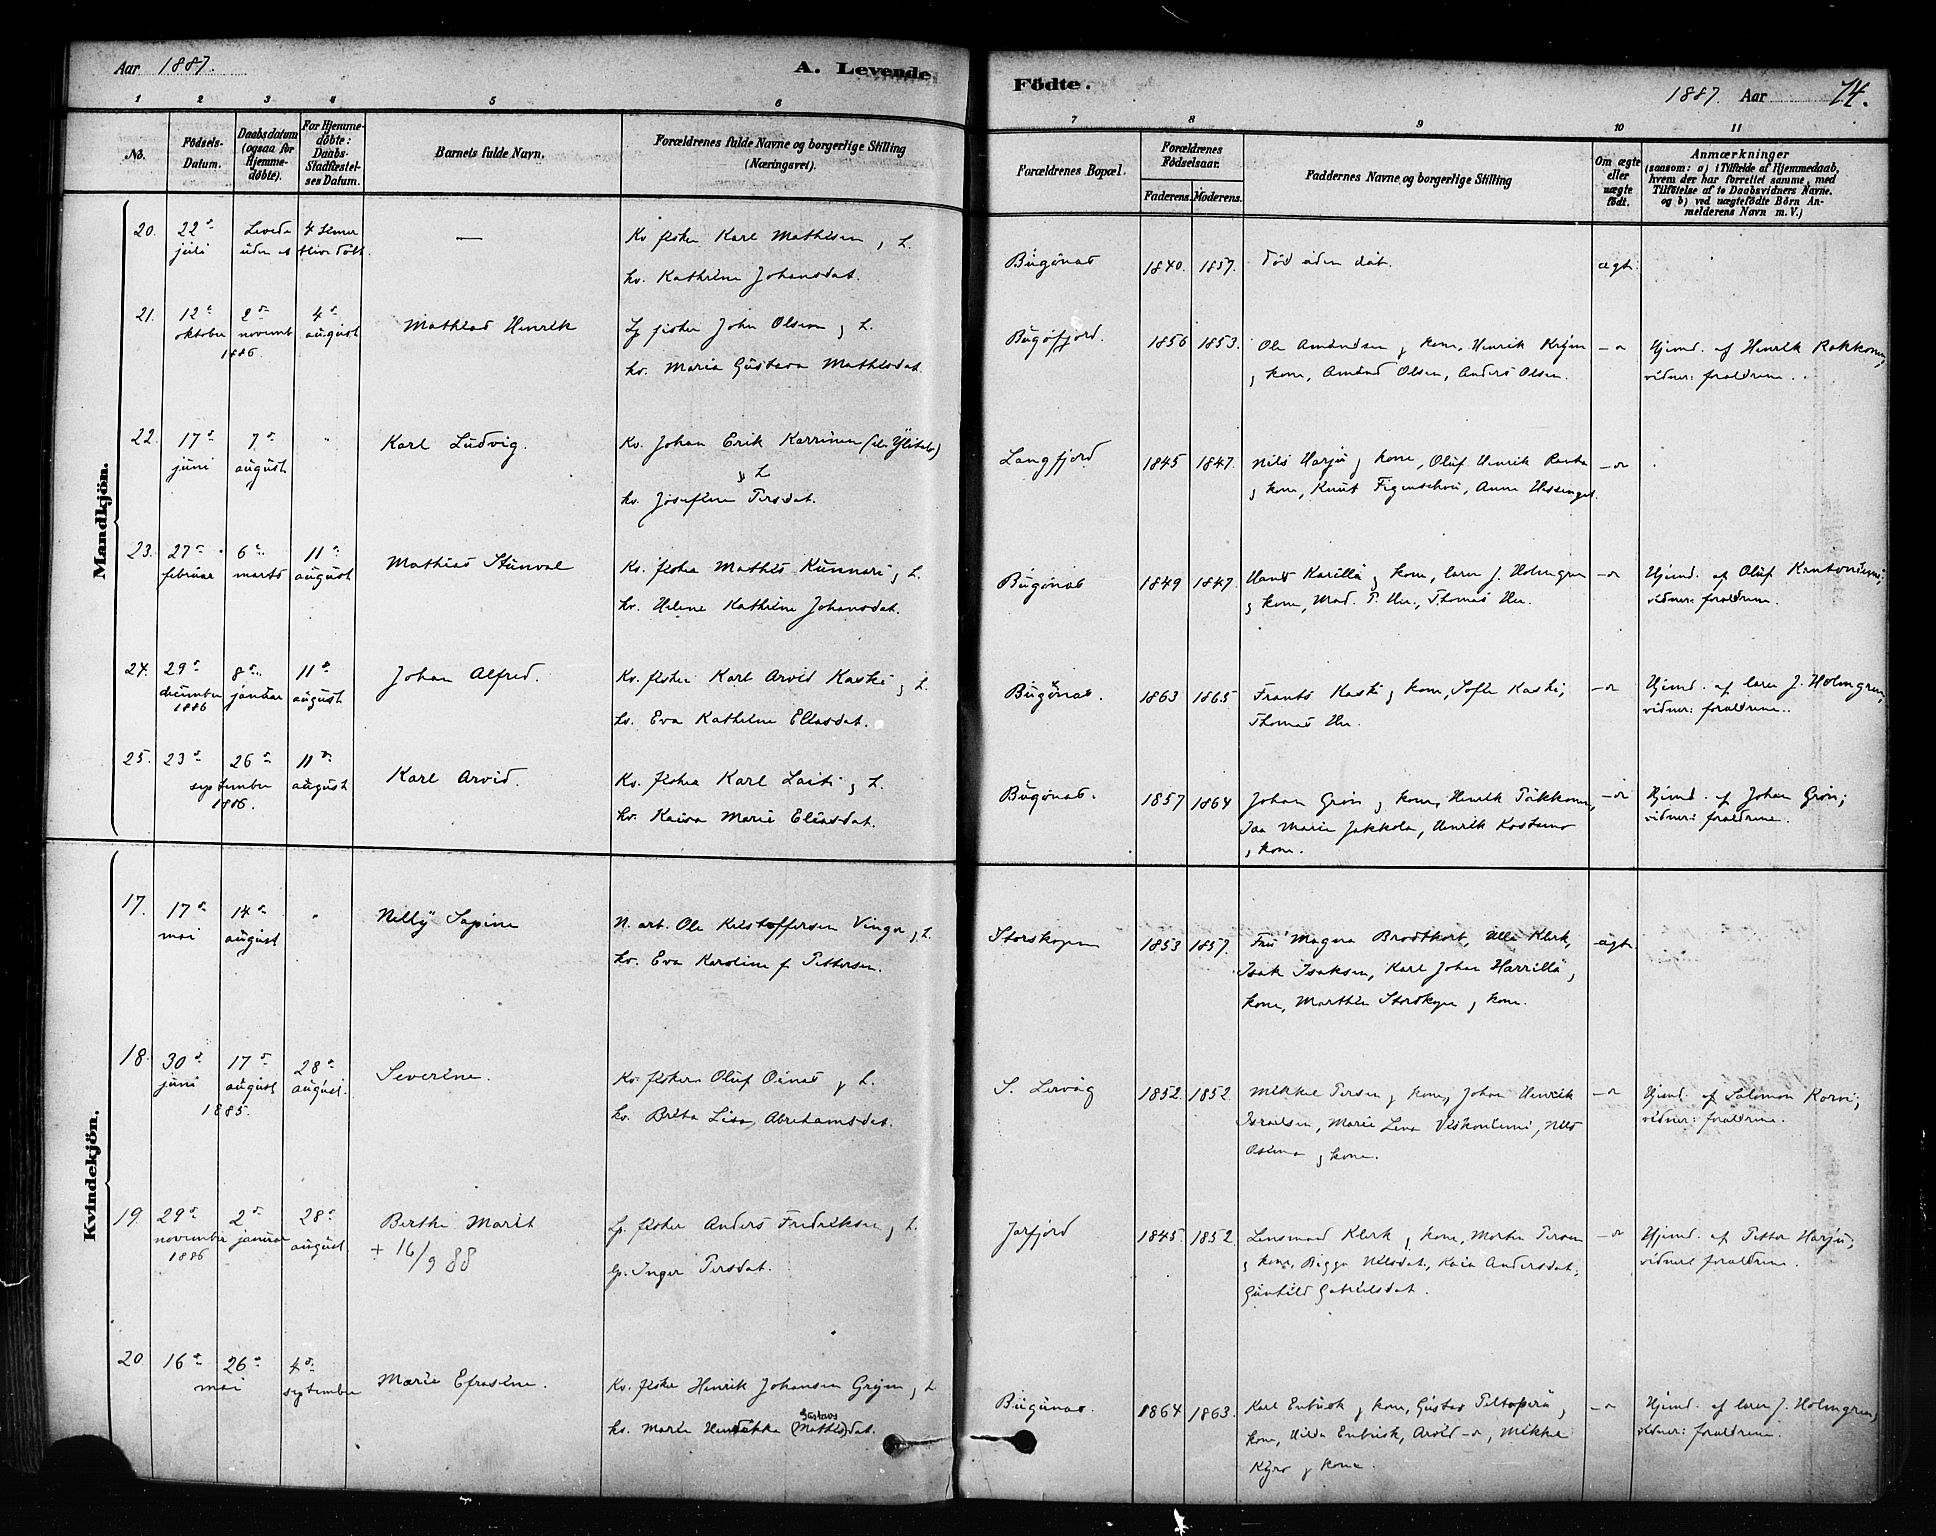 Aar 1887.
A. Levende
Födte.
1887. Aar 74.
1 2 3 4 5 6
7 8 9 10 11
No.
Födsels-
Datum.
Daabsdatum
(ogsaa for
Hjemme-
döbte).
For Hjemme-
döbte:
Daabs-
Stadfæstel-
ses Datum.
Barnets fulde Navn.
Forældrenes fulde Navne og borgerlige Stilling
(Næringsvei).
Forældrenes Bopæl.
Forældrenes
Födselsaar.
Faderens. Moderens.
Faddernes Navne og borgerlige Stilling
Om ægte
eller
uægte
födt.
Anmærkninger
(saasom: a) i Tilfælde af Hjemmedaab,
hvem der har forrettet samme, med
Tilföielse af to Daabsvidners Navne,
og b) ved uægtefödte Börn An-
melderens Navn m. V.)
Mandkjön.
20. 22de juli
Levede 4 timer
uden at blive döbt.
—
Kv. fisker Karl Mathisen & h.
kv. Kathrine Johansdat.
Bugönæs 1840. 1857.
Död uden dåb.
ægt.
21. 12te oktober 2den novemb. 1886. 4de august
Mathias Henrik
Lp. fisker John Olsen & h.
kv. Maria Gustava Mathisdat.
Bugöfjord. 1856 1853.
Ole Amundsen & kone, Henrik
& kone, Amund Olsen, Anders Olsen.
Hjemd. af Henrik
vidner: forældrene.
22. 17de juni 7de august "
Karl Ludvig.
Kv. Johan Erik Karrinen
& h.
kv. Josefine Persdat.
Langfjord 1845 1847.
Nils Harju & kone, Oluf Henrik
& kone, Knut Figenschou, Anne
23. 27de februar 6te marts 11te august
Mathias
Kv. fisker Mathis Kunnari & h.
kv. Helene Kathrine Johansdat.
Bugönæs 1849 1847.
Hans Karilla & kone, lærer J. Holmgren
& kone, Thomas
Hjemd. af Oluf
vidner: forældrene.
24. 29de december 1886 8de januar 11te august
Johan Alfred.
Kv. fisker Karl Arvid Kaski & h.
kv. Eva Kathrine Eliasdat.
Bugönæs. 1863 1865
Frants Kaski & kone, Sofie Kaski,
Thomas
Hjemd. af lærer J. Holmgren,
vidner: forældrene.
25. 23de 26de september 1886. 11te august
Karl Arvid.
Kv. fisker Karl Laiti & h.
kv. Kaisa Marie Eliasdat.
Bugönæs. 1857 1864
Johan Grön & kone, Henrik
Marie Jakkola, Henrik
& kone.
Hjemd. af Johan Grön;
vidner: forældrene.
Kvindekjön.
17. 17de mai 14de august "
Nelly Sapine
N. arb. Ole Kristoffersen Vinge & h.
kv. Eva Karoline f. Pettersen.
Storskogen 1853 1857.
Fru Magna Brodtkorb,
Isak Isaksen, Karl Johan Harrilla &
kone, Storskogen & kone.
ægt.
18. 30te juni 17de august 1885. 28de august.
Severine.
Kv. fisker Oluf & h.
kv. Brita Lisa Abrahamsdat.
S. Lervåg 1852. 1852.
Mikkel Persen & kone, Johan Henrik
Israelsen, Marie Lena
& kone.
Hjemd. af Salomon Korvi;
vidner: forældrene.
19. 29de november 1886 2den januar 28de august.
Berthe Marit
+ 16/9 88
Lp. fisker Anders Fredriksen & h.
lp. Inger Persdat.
Jarfjord 1845 1852.
Lensmand Klerk & kone,
& kone, Nilsdat, Kaia Andersdat,
Gunhild Gabrielsdat.
Hjemd. af Petter Harju,
vidner: forældrene.
20. 16de 26de mai 4de september
Marie Efrosine.
Kv. fisker Henrik Johansen & h.
kv. Marie (Mathis)dat. Gustavs
Bugönæs. 1864 1863.
Karl & kone, Gustav &
kone, Hilda Arvid
& kone
Hjemd. af lærer J. Holmgren;
vidner: forældrene.